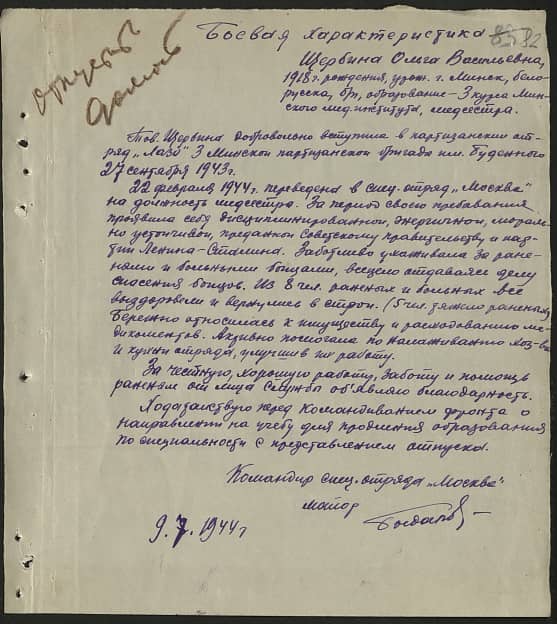 Боевая характеристика
82
отпустить
домой
Щербина Ольга Васильевна,
1918 г. рождения, урож. г. Минск, бело-
русска, б/п, образование – 3 курса Мин-
ского мед.института, медсестра.
Тов. Щербина добровольно вступила в партизанский от-
ряд „Лазо" 3 Минской партизанской бригады им. Буденного
27 сентября 1943 г.
22 февраля 1944 г. переведена в спец. отряд „Москва"
на должность медсестры. За период своего пребывания
проявила себя дисциплинированной, энергичной, мораль-
но устойчивой, преданной Советскому правительству и пар-
тии Ленина–Сталина. Заботливо ухаживала за ране-
ными и больными бойцами, всецело отдаваясь делу
спасения бойцов. Из 8 чел. раненых и больных все
выздоровели и вернулись в строй. (5 чел. тяжело раненых)
Бережно относилась к имуществу и расходованию ме-
дикоментов. Активно помогала по налаживанию хоз-ва
и кухни отряда, улучшив их работу.
За честную, хорошую работу, заботу и помощь
раненым от лица службы об'являю благодарность.
Ходатайствую перед командованием фронта о
направлении на учебу для продления образования
по специальности с представлением отпуска.
Командир спец. отряда „Москва"
майор
9.7.1944 г